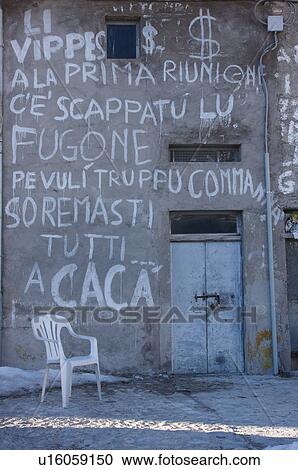 LI
VIPPES $ $
A LA PRIMA RIUNIONE
C'È SCAPPATU LU
FUGONE
PE VULÍ TRUPPU COMMANNA
SO REMASTI
TUTTI...
A CACÀ
fotosearch
u16059150 www.fotosearch.com